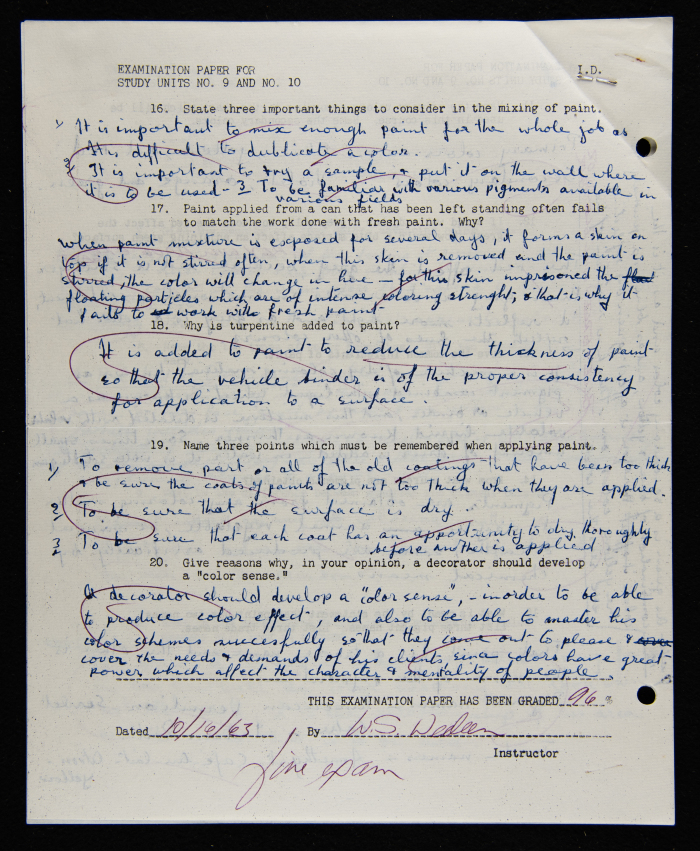 EXAMINATION PAPER FOR I.D.
STUDY UNITS NO. 9 AND NO. 10
16. State three important things to consider in the mixing of paint.
1/ It is important to mix enough paint for the whole job as
It is difficult to dublicate a color.
2/ It is important to try a sample, & put it on the wall where
it is to be used - 3 To be familiar with various pigments available in
various fields
17. Paint applied from a can that has been left standing often fails
to match the work done with fresh paint. Why?
When paint mixture is exposed for several days, it forms a skin on
top if it is not stirred often, when this skin is removed and the paint is
stirred, the color will change in hue — for this skin imprisoned the
floating particles which are of intense coloring strenght; & that is why it
fails to work with fresh paint
18. Why is turpentine added to paint?
It is added to paint to reduce the thickness of paint
so that the vehicle binder is of the proper consistency
for application to a surface.
19. Name three points which must be remembered when applying paint.
1/ To remove part or all of the old coatings that have been too thick
& be sure the coats of paints are not too thick when they are applied.
2/ To be sure that the surface is dry.
3/ To be sure that each coat has an apportunity to dry thoroughly
before another is applied
20. Give reasons why, in your opinion, a decorator should develop
a "color sense."
A decorator should develop a "color sense", - inorder to be able
to produce color effect, and also to be able to master his
color schemes succesfully so that they come out to please &
cover the needs & demands of his clients, since colors have great
power which affect the character & mentality of people.
THIS EXAMINATION PAPER HAS BEEN GRADED 96 %
Dated 10/16/63 By W.S.
Instructor
fine exam